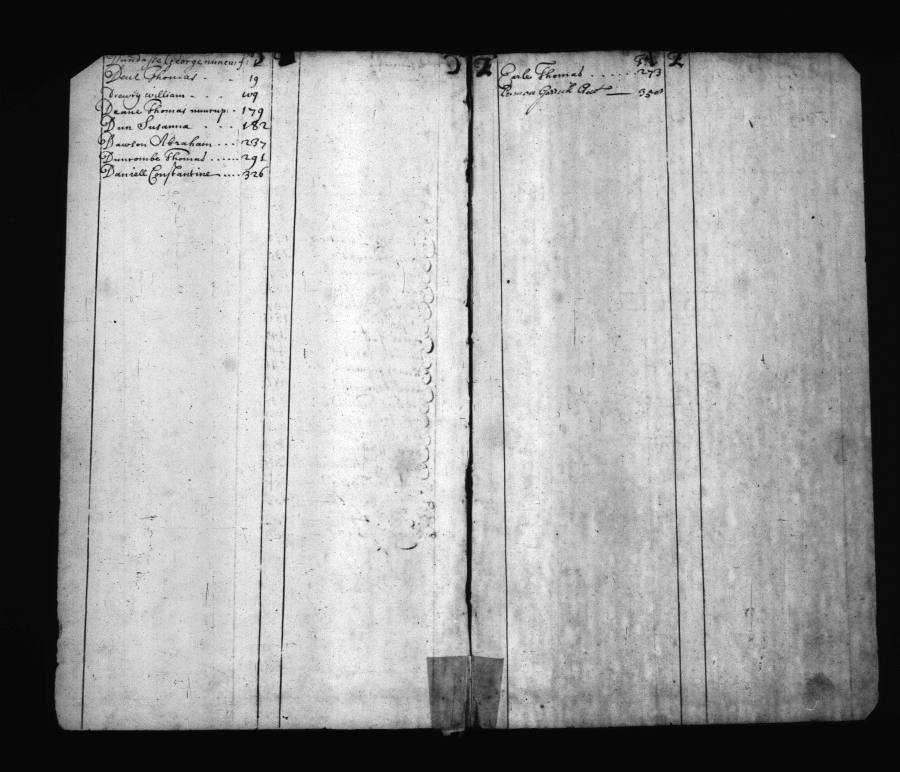 George
Dent Thomas . . 19
Drewry william . . 109
Deane Thomas nuncup. . 179
Dun Susanna . . . . 182
Dawson Abraham . . . 237
Duncombe Thomas ...... 291
Daniell Constantine .... 326
D
Earle Thomas ...... 273